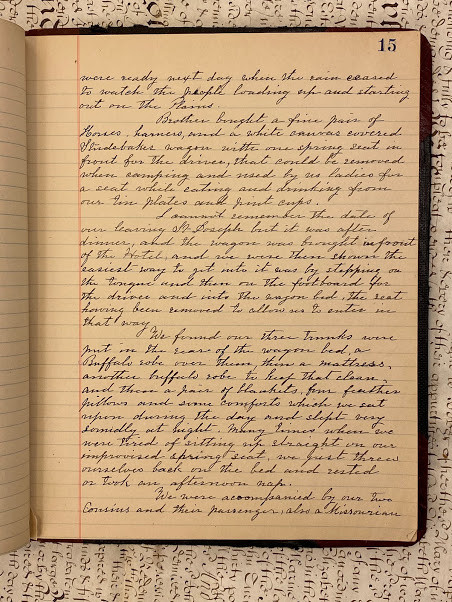 15
were ready next day when the rain ceased
to watch the people loading up and starting
out on the Plains.
Brother bought a fine pair of
Horses, harness, and a white canvas covered
Studebaker wagon with one spring seat in
front for the driver, that could be removed
when camping and used by us ladies for
a seat while eating and drinking from
our tin plates and pint cups.
I cannot remember the date of
our leaving St Joseph but it was after
dinner, and the wagon was brought in front
of the Hotel, and we were then shown the
easiest way to get into it was by stepping on
the tongue and then on the footboard for
the driver and into the wagon bed, the seat
having been removed to allow us to enter in
that way.
We found our three trunks were
put in the rear of the wagon bed, a
Buffalo robe over them, then a mattress,
another buffalo robe to keep that clean,
and then a pair of blankets, four feather
pillows and some comforts which we sat
upon during the day and slept very
soundly at night. Many times when we
were tired of sitting up straight on our
improvised spring seat, we just threw
ourselves back on the bed and rested
or took an afternoon nap.
We were accompanied by our two
Cousins and their passenger, also a Missourian